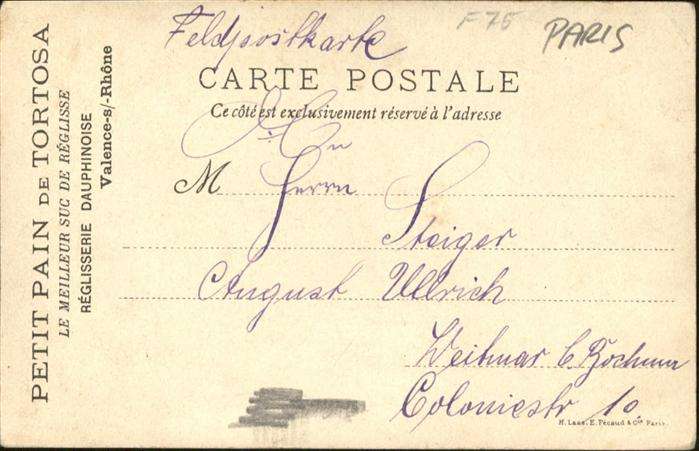 PETIT PAIN DE TORTOSA
LE MEILLEUR SUC DE RÉGLISSE
RÉGLISSERIE DAUPHINOISE
Valence-s/-Rhône
F 75
PARIS
Feldpostkarte
CARTE POSTALE
Ce côté est exclusivement réservé à l'adresse
An
M Herrn
Steiger
August Ullrich
Weitmar b. Bochum
Coloniestr 10
H. Laas, E. Pécaud & Cie Paris.